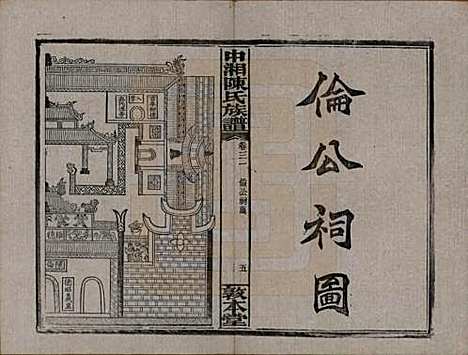 倫公祠圖
中湘陳氏族譜
卷三一 倫公祠圖
五
敦本堂